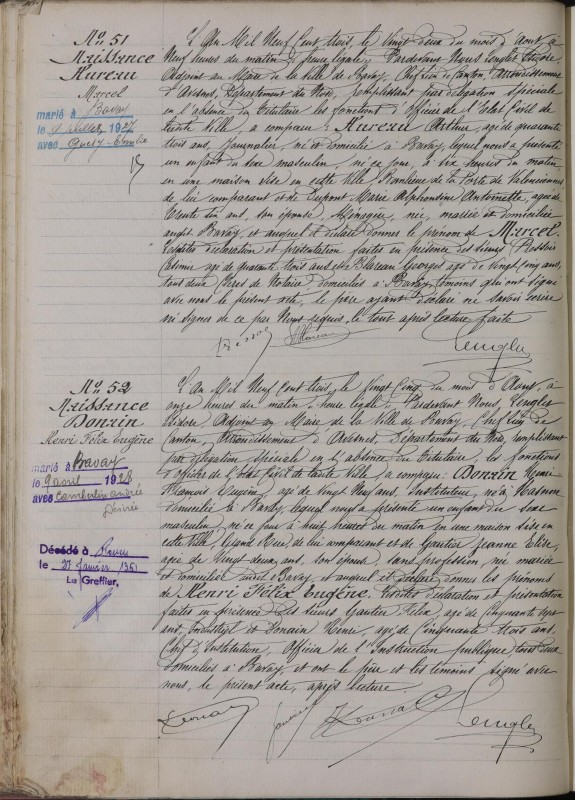 No 51
Naissance
Hureau
Marcel
marié à Bavay
le juillet 1927
avec
L'An Mil Neuf Cent trois, le vingt deux du mois d'Août, à
Neuf heures du matin, heure légale, Pardevant Nous Lengler Isidore
Adjoint au Maire de la Ville de Bavay, Chef lieu de Canton, Arrondissement
d'Avesnes, Département du Nord, remplissant par délégation spéciale
en l'absence du titulaire les fonctions d'Officier de l'Etat Civil de
la dite Ville, a comparu: Arthur, agé de quarante
trois ans, journalier, né et domicilié à Bavay, lequel nous a présenté
un enfant du sexe masculin, né ce jour, à six heures du matin
en une maison sise en cette Ville, de la Porte de Valenciennes
de lui comparant et de Dupont Marie Alphonsine Antoinette, agée de
trente six ans, son épouse, Ménagère, née, mariée et domiciliée
audit Bavay, et auquel il a déclaré donner le prénom de Marcel.
Lesdites déclaration et présentation faites en présence des Sieurs
Casimir agé de quarante trois ans et Blareau Georges agé de vingt cinq ans,
tous deux Clercs de Notaire, domiciliés à Bavay, témoins qui ont signé
avec nous le présent acte, le père ayant déclaré ne savoir écrire
ni signer de ce par Nous requis, le tout après lecture faite
Lengler
No 52
Naissance
Donzin
Henri Félix Eugène
marié à Bavay
le 9 avril 1928
avec Cambertin andrée
Désirée
Décédé à
le 27 Janvier 1951
Le Greffier,
L'An Mil Neuf Cent trois, le Vingt Cinq du mois d'Août, à
onze heures du matin, heure légale, Pardevant Nous, Lengler
Isidore, Adjoint au Maire de la Ville de Bavay, Chef lieu de
Canton, Arrondissement d'Avesnes, Département du Nord, remplissant
par délégation spéciale en l'absence du titulaire, les fonctions
d'Officier de l'Etat Civil de la dite Ville, a comparu: Donzin Henri
François Eugène, agé de vingt Neuf ans, Instituteur, né à
domicilié à Bavay, lequel nous a présenté un enfant du Sexe
masculin, né ce jour à huit heures du matin en une maison sise en
cette Ville, Grande Rue de lui comparant et de Gautier Jeanne Elise,
agée de Vingt deux ans, son épouse, sans profession, née mariée
et domiciliée audit Bavay et auquel il a déclaré donner les prénoms
de Henri Félix Eugène. Lesdites déclaration et présentation
faites en présence des Sieurs Gautier Félix, agé de Cinquante Sept
ans, Industriel et agé de Cinquante trois ans,
Chef d'Institution, Officier de l'Instruction publique tous deux
domiciliés à Bavay, et ont le père et les témoins signé avec
nous, le présent acte, après lecture.
Lengler